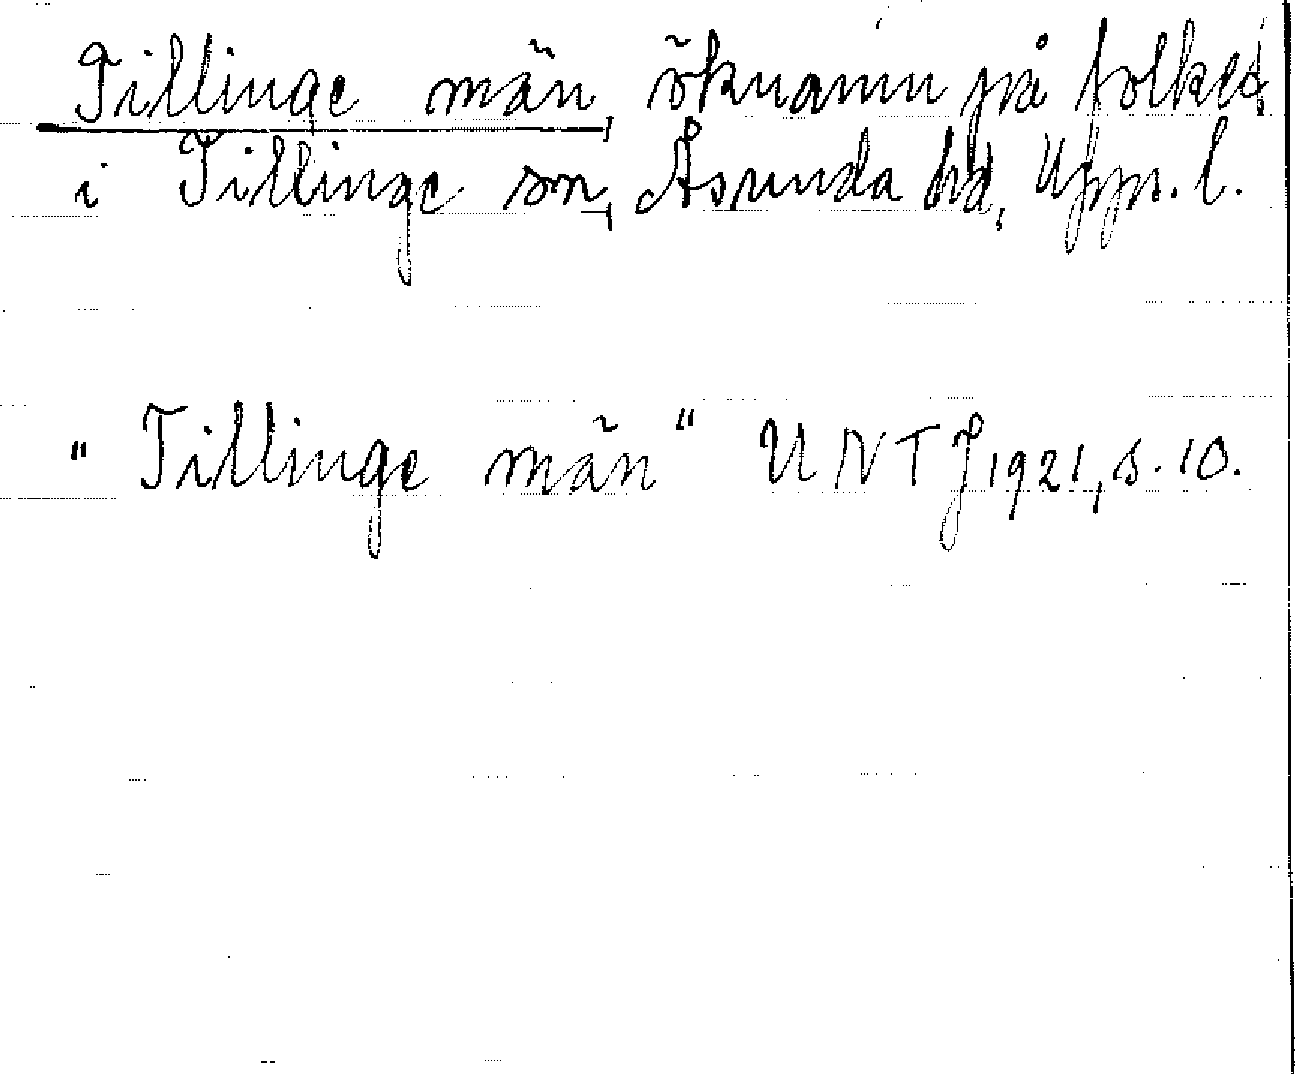 Tillinge män, öknamn på folket
i Tillinge sn, Åsunda hd, Upps. l.
"Tillinge män" UNTJ 1921, s. 10.